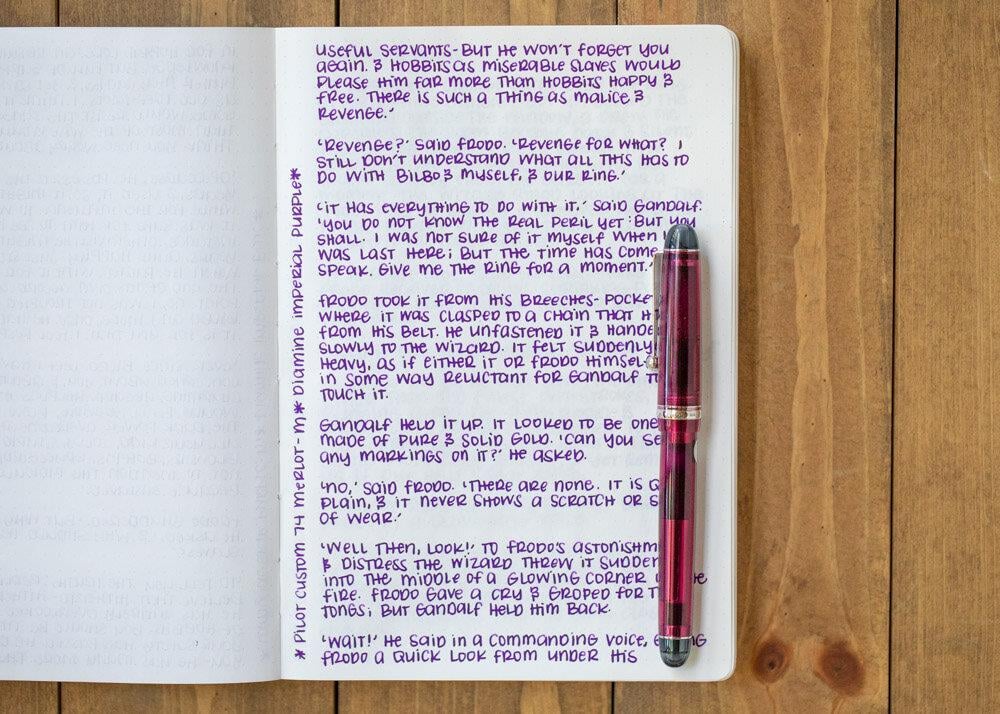 USEFUL SERVANTS - BUT HE WON'T FORGET YOU
AGAIN. & HOBBITS AS MISERABLE SLAVES WOULD
PLEASE HIM FAR MORE THAN HOBBITS HAPPY &
FREE. THERE IS SUCH A THING AS MALICE &
REVENGE.'
'REVENGE?' SAID FRODO. 'REVENGE FOR WHAT? I
STILL DON'T UNDERSTAND WHAT ALL THIS HAS TO
DO WITH BILBO & MYSELF, & OUR RING.'
'IT HAS EVERYTHING TO DO WITH IT.' SAID GANDALF.
'YOU DO NOT KNOW THE REAL PERIL YET: BUT YOU
SHALL. I WAS NOT SURE OF IT MYSELF WHEN I
WAS LAST HERE; BUT THE TIME HAS COME
SPEAK. GIVE ME THE RING FOR A MOMENT.'
FRODO TOOK IT FROM HIS BREECHES-POCKET
WHERE IT WAS CLASPED TO A CHAIN THAT
FROM HIS BELT. HE UNFASTENED IT &
SLOWLY TO THE WIZARD. IT FELT SUDDENLY
HEAVY, AS IF EITHER IT OR FRODO
IN SOME WAY RELUCTANT FOR GANDALF
TOUCH IT.
GANDALF HELD IT UP. IT LOOKED TO BE ONE
MADE OF PURE & SOLID GOLD. 'CAN YOU
ANY MARKINGS ON IT?' HE ASKED.
'NO,' SAID FRODO. 'THERE ARE NONE. IT IS
PLAIN, & IT NEVER SHOWS A SCRATCH OR
OF WEAR.'
'WELL THEN, LOOK!' TO FRODO'S
& DISTRESS THE WIZARD THREW IT
INTO THE MIDDLE OF A GLOWING CORNER
FIRE. FRODO GAVE A CRY & GROPED FOR
TONGS; BUT GANDALF HELD HIM BACK.
'WAIT!' HE SAID IN A COMMANDING VOICE,
FRODO A QUICK LOOK FROM UNDER HIS
* PILOT CUSTOM 74 MERLOT - M * DIAMINE IMPERIAL PURPLE *